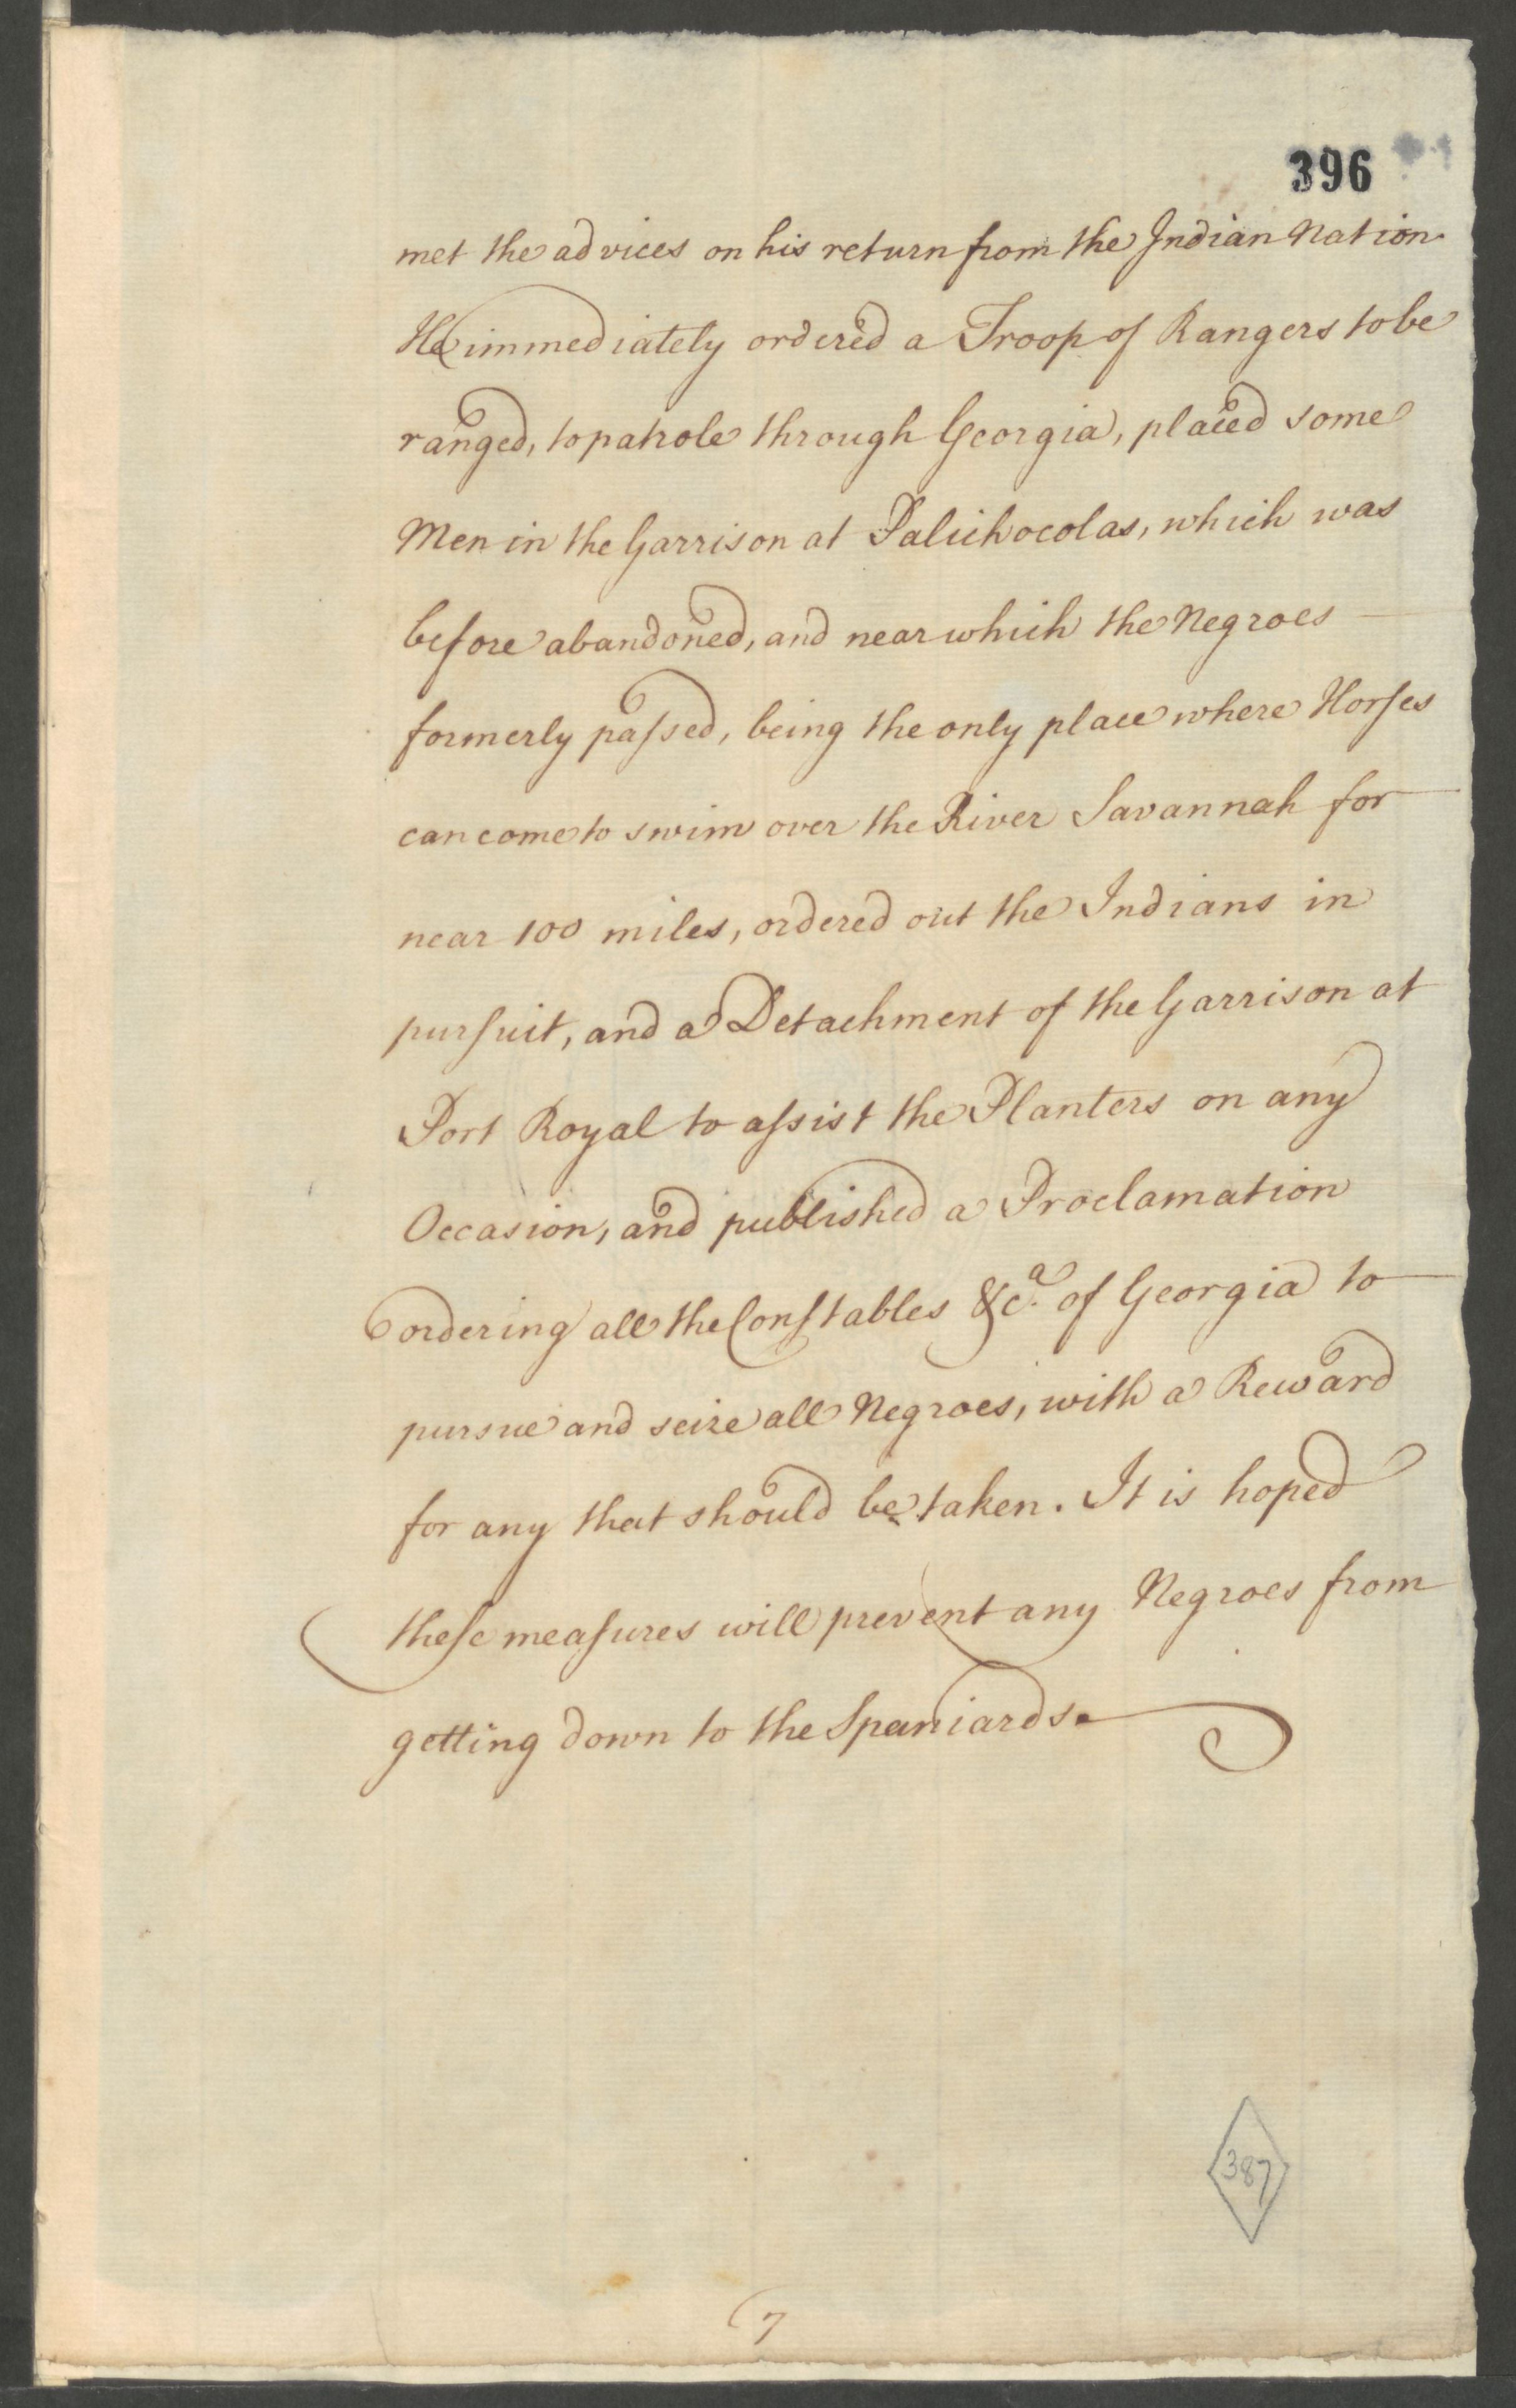 396
met the advices on his return from the Indian Nation.
He immediately ordered a Troop of Rangers to be
ranged, to patrole through Georgia, placed some
Men in the Garrison at Palichocolas, which was
before abandoned, and near which the Negroes
formerly paſsed, being the only place where Horſes
can come to swim over the River Savannah for
near 100 miles, ordered out the Indians in
purſuit, and a Detachment of the Garrison at
Port Royal to aſsist the Planters on any
Occasion, and published a Proclamation
ordering all the Conſtables &c.a of Georgia to
pursue and seize all Negroes, with a Reward
for any that should be taken. It is hoped
theſe meaſures will prevent any Negroes from
getting down to the Spaniards.
387
7